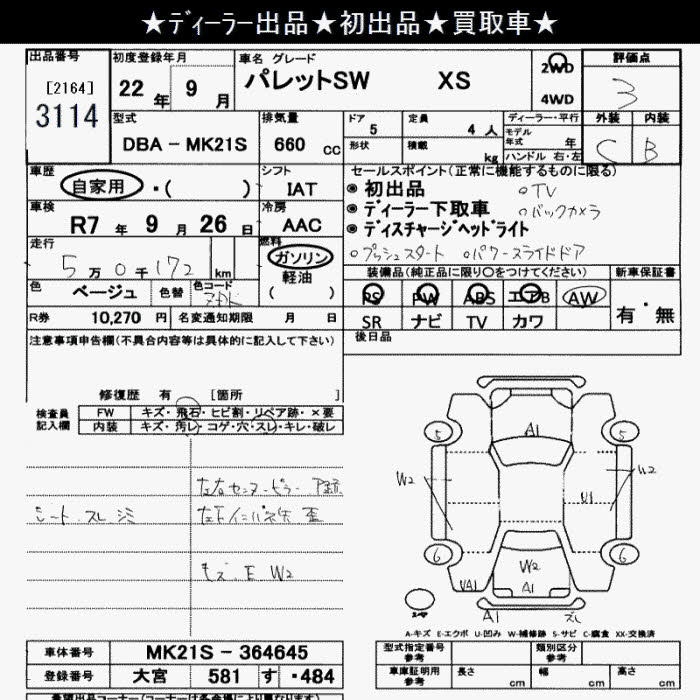 ★ディーラー出品★初出品★買取車★
出品番号 [2164] 3114
初度登録年月 22年 9月
車名 グレード パレットSW XS
2WD 4WD
評価点 3
型式 DBA − MK21S
排気量 660 cc
ドア 5
定員 4人
形状
積載 kg
ディーラー・平行
モデル年式 年
ハンドル 右・左
外装 C
内装 B
車歴 自家用・( )
シフト IAT
セールスポイント(正常に機能するものに限る)
初出品
ディーラー下取車
ディスチャージヘッドライト
○TV
○バックカメラ
○プッシュスタート ○パワースライドドア
車検 R7年 9月 26日
冷房 AAC
走行 5万0千172 km
燃料 ガソリン 軽油 ( )
色 ベージュ
色替
色コード
装備品(純正品に限り○をつけてください)
PS PW ABS エアB AW
SR ナビ TV カワ
新車保証書 有・無
R券 10,270 円
名変通知期限 月 日
後日品
注意事項申告欄(不具合内容等は具体的に記入して下さい)
修復歴 有 [箇所 ]
検査員記入欄
FW キズ・飛石・ヒビ割・リペア跡・×要
内装 キズ・汚レ・コゲ・穴・スレ・キレ・破レ
シート スレ シミ
キズ・E W2
A1
5 5
W2 W2
U1
6 6
W2
A1
UA1
A1
スレ
A-キズ E-エクボ U-凹み W-補修跡 S-サビ C-腐食 XX-交換済
車体番号 MK21S − 364645
登録番号 大宮 581 す ・484
型式指定番号 参考
類別区分 参考
車庫証明用 参考
長さ cm
幅 cm
高さ cm
希望出品コーナー(コーナーは各会場により異なります)